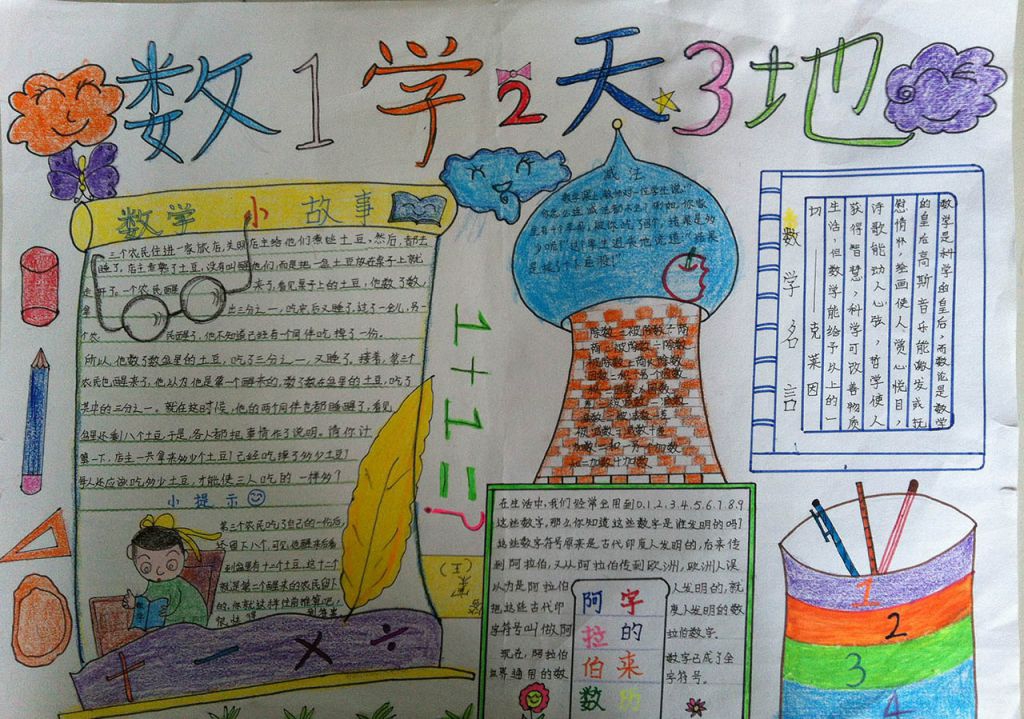 数1学2天3地
数学小故事
三个农民住进一家旅店,失明店主给他们煮些土豆,然后,都去
睡了,店主煮熟了土豆,没有叫醒他们,而是把一盆土豆放在桌子上就
走开了。一个农民醒来了,看见桌子上的土豆,他数了数,
出三分之一,吃完后又睡了,过了一会儿,另一
个农民醒了,他不知道已经有一个同伴吃掉了一份。
所以,他数了数盆里的土豆,吃了三分之一,又睡了。接着,第三个
农民也醒来了,他认为他是第一个醒来的,数了数在盆里的土豆,吃了
其中的三分之一。就在这时候,他的两个同伴也都睡醒了,看见
盆里还剩八个土豆,于是,各人都把事情作了说明。请你计
算一下,店主一共拿来多少个土豆?已经吃掉了多少土豆?
每人还应该吃多少土豆,才能使三人吃的一样多?
小提示
第三个农民吃了自己的一份后,
还留下八个,可见他醒来后看
到盆里有十二个土豆,这十二个
就是第二个醒来的农民留下
的,你就这样往前推算吧,
+ - × ÷
1+1=?
减法
数学课上,教师对一位学生说:“
你怎么连减法都不会?例如,你家
里有十个苹果,被你吃了四个,结果是多
少呢?”这个学生沮丧地说道:“结果
是挨了十下屁股!”
除数=被除数÷商
商=被除数÷除数
被除数=商×除数
加数=和-另一个加数
和=加数+加数
数学名言
数学是科学的皇后,而数论是数学
的皇后 高斯 音乐能激发或抚
慰情怀,绘画使人赏心悦目,
诗歌能动人心弦,哲学使人
获得智慧,科学可改善物质
生活,但数学能给予以上的一
切 ——克莱因
在生活中,我们经常会用到0.1.2.3.4.5.6.7.8.9
这些数字,那么你知道这些数字是谁发明的吗?
这些数字符号原来是古代印度人发明的,后来传
到阿拉伯,又从阿拉伯传到欧洲,欧洲人误
以为是阿拉伯人发明的,就
把这些古代印度人发明的数
字符号叫做阿拉伯数字。
现在,阿拉伯数字已成了全
世界通用的数字符号。
阿拉伯数
字的来
1
2
3
4